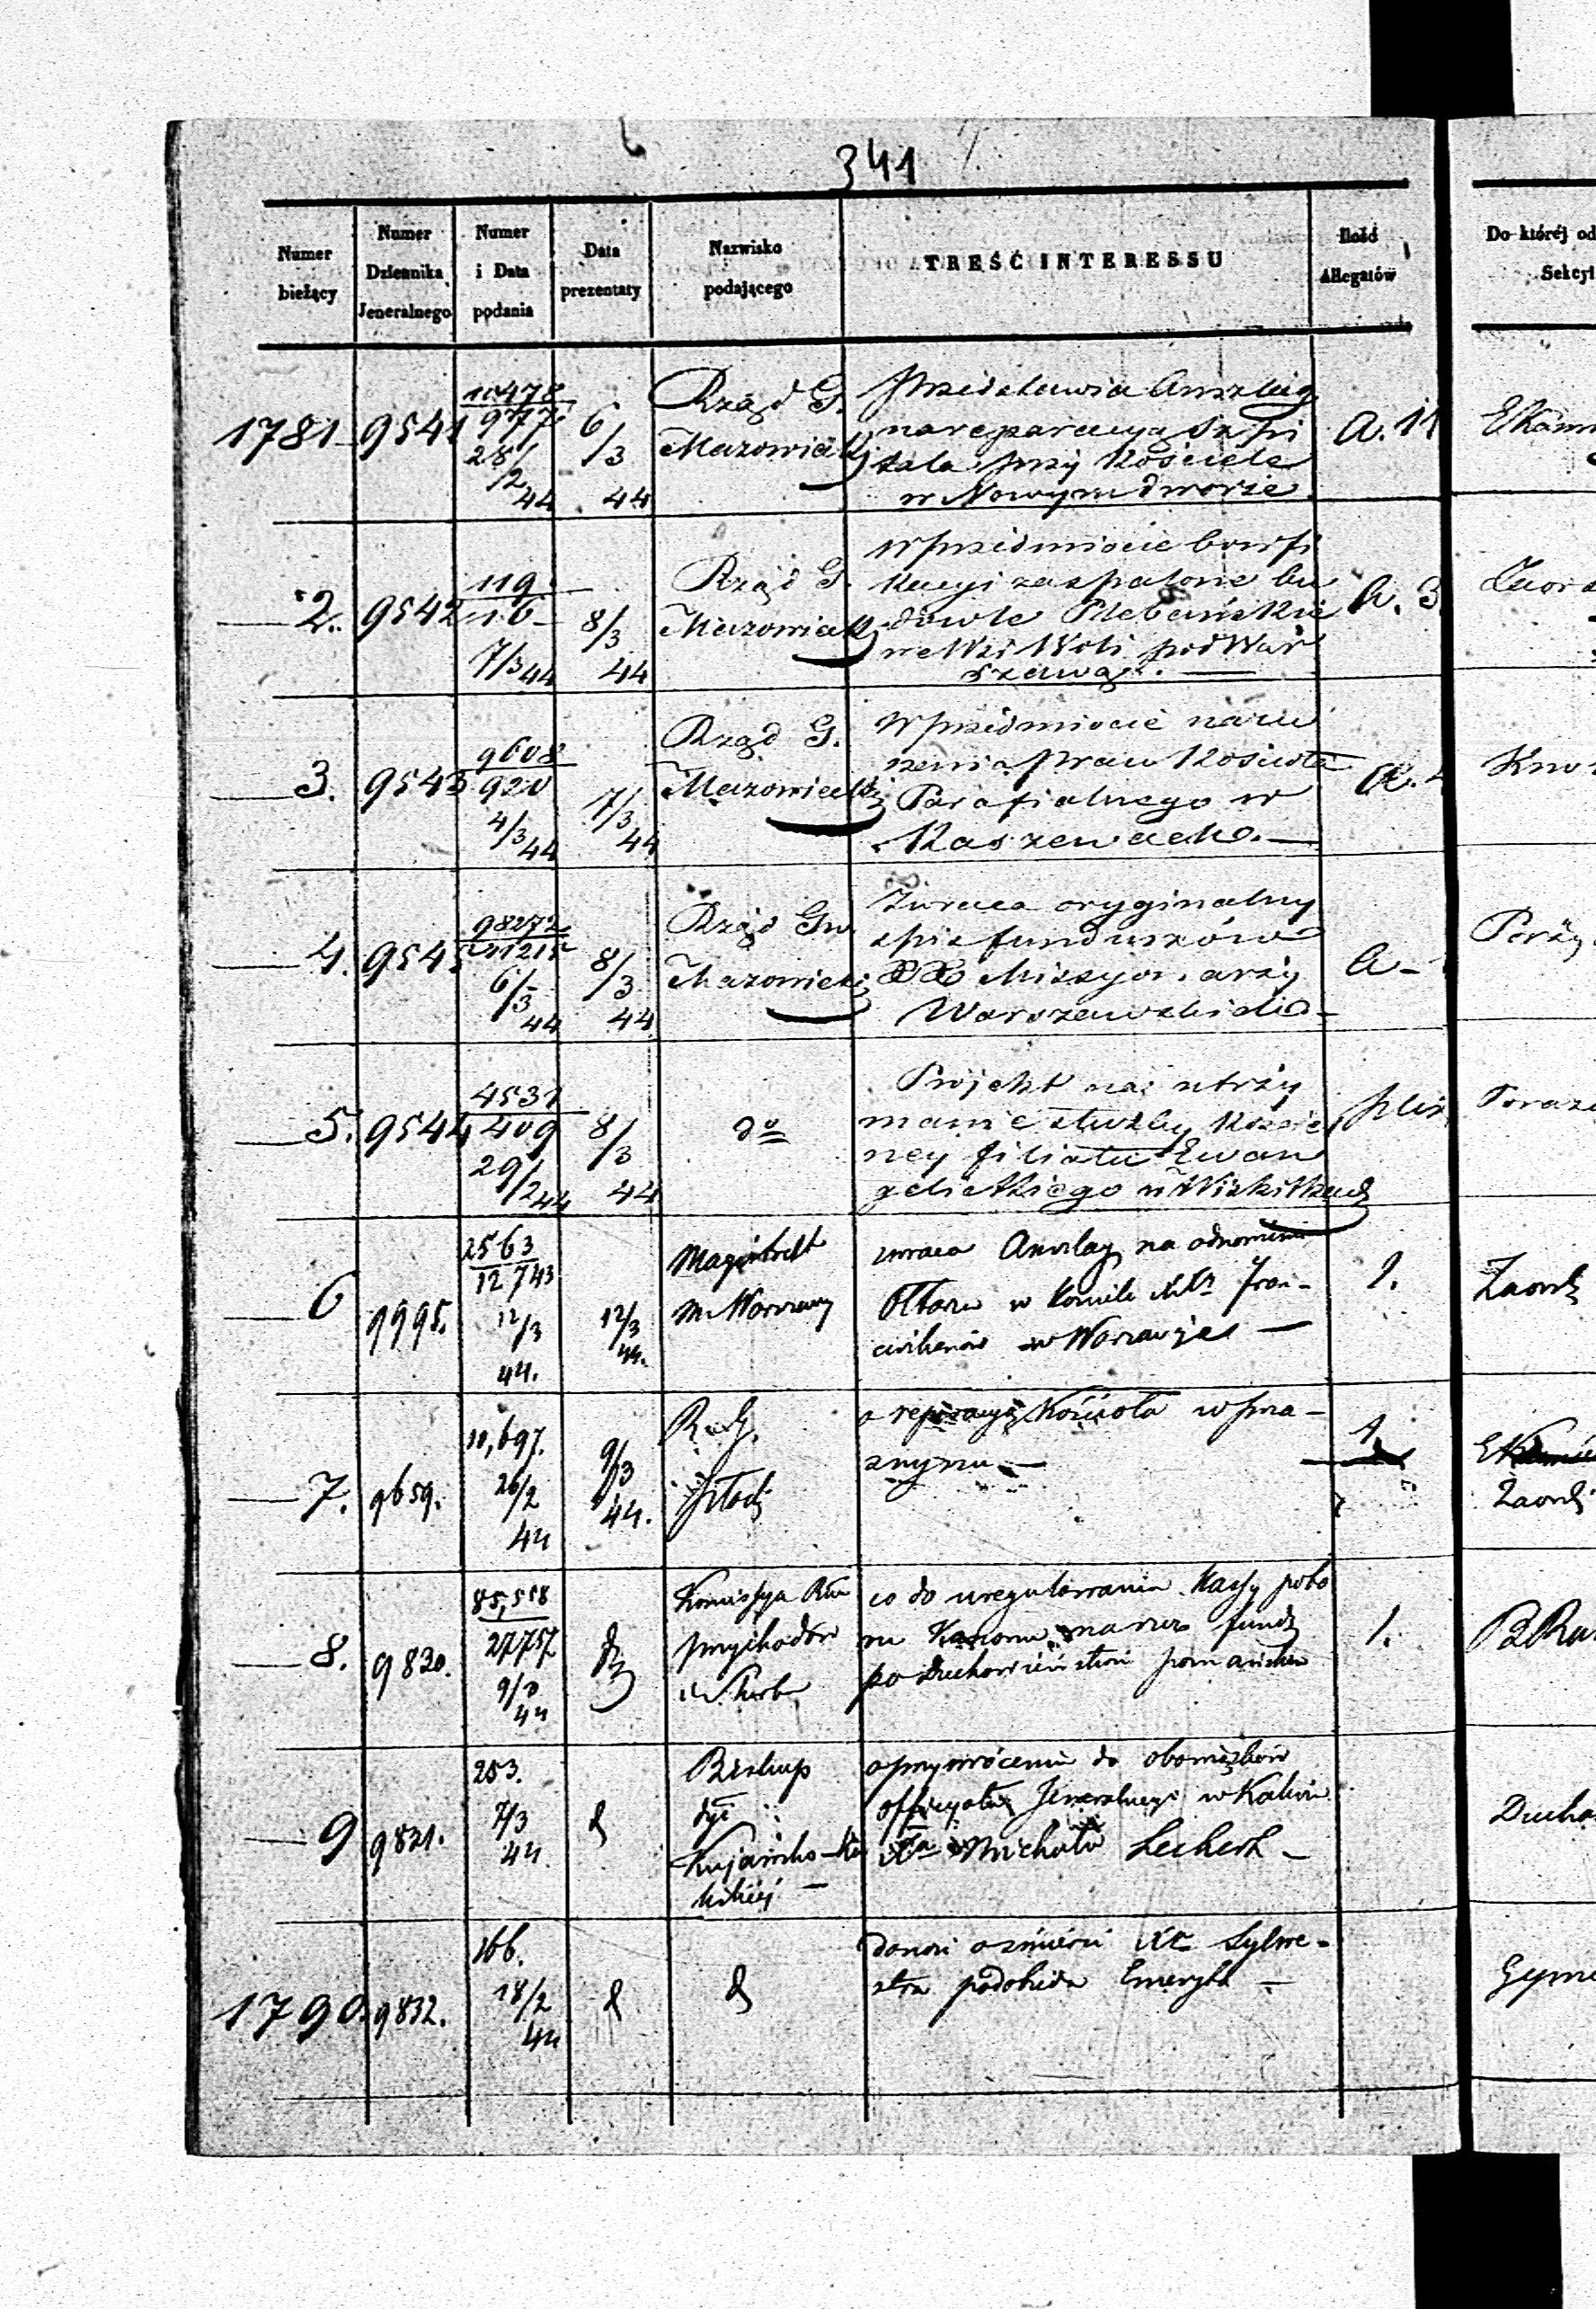 341
Numer bieżący
Numer Dziennika Jeneralnego
Numer i Data podania
Data prezentaty
Nazwisko podającego
TREŚĆ INTERESSU
Ilość Allegatów
Do któréj od
Sekcyi
1781 9541 10478 / 9777 28/2 44 6/3 44
Rząd G.
Mazowiecki
Przedstawia Anszlag
na reparacyą Szpi
tala przy Kościele
w Nowym dworze
a. 11
2. 9542 119 / 16 7/3 44 8/3 44
Rząd G.
Mazowiecki
W przedmiocie
za spalone bu
dowle Plebańskie
we Wsi Woli pod War
szawą.
a. 3
3. 9543 9608 / 920 4/3 44 7/3 44
Rząd G.
Mazowiecki
W przedmiocie naru
szenia praw Kościoła
Parafialnego w
Kaszewach.
a.
4. 9545 98272 6/3 44 8/3 44
Rząd Gu.
Mazowiecki
Zwraca oryginalny
spis funduszów
XX Missyonarzy
Warszawskich
a
5. 9544 4531 / 409 29/2 44 8/3 44
do
Projekt na utrzy
manie służby Kościel
ney filiału Ewan
gelickiego w Wiskitkach
plik
6 9995. 2563 / 12743 12/3 44. 12/3 44.
Magistrat
M. Warszawy
zwraca Anszlag na odnowienie
Ołtarza w Kościele Fran-
ciszkanów w Warszawie
1.
7. 9659. 10,697. 26/2 44 9/3 44.
R. G.
Płocki
o reperacyi Kościoła w Prza-
snyszu
1
8. 9820. 85,558 / 27757 9/3 44
Komissya Rzą
przychodów
i Skarbu
co do uregulowania Kassy pobo
ru funds
po Duchowieństwie
1.
9 9821. 253. 7/3 44.
Biskup
dyi
Kujawsko-Ka
liskiej
o przywrócenie do obowiązków
officyała Jeneralnego w Kaliszu
Xa Michała
Ducho
1790. 9832. 166. 18/2 44
donosi o śmierci Xa Sylwe-
stra Emeryta